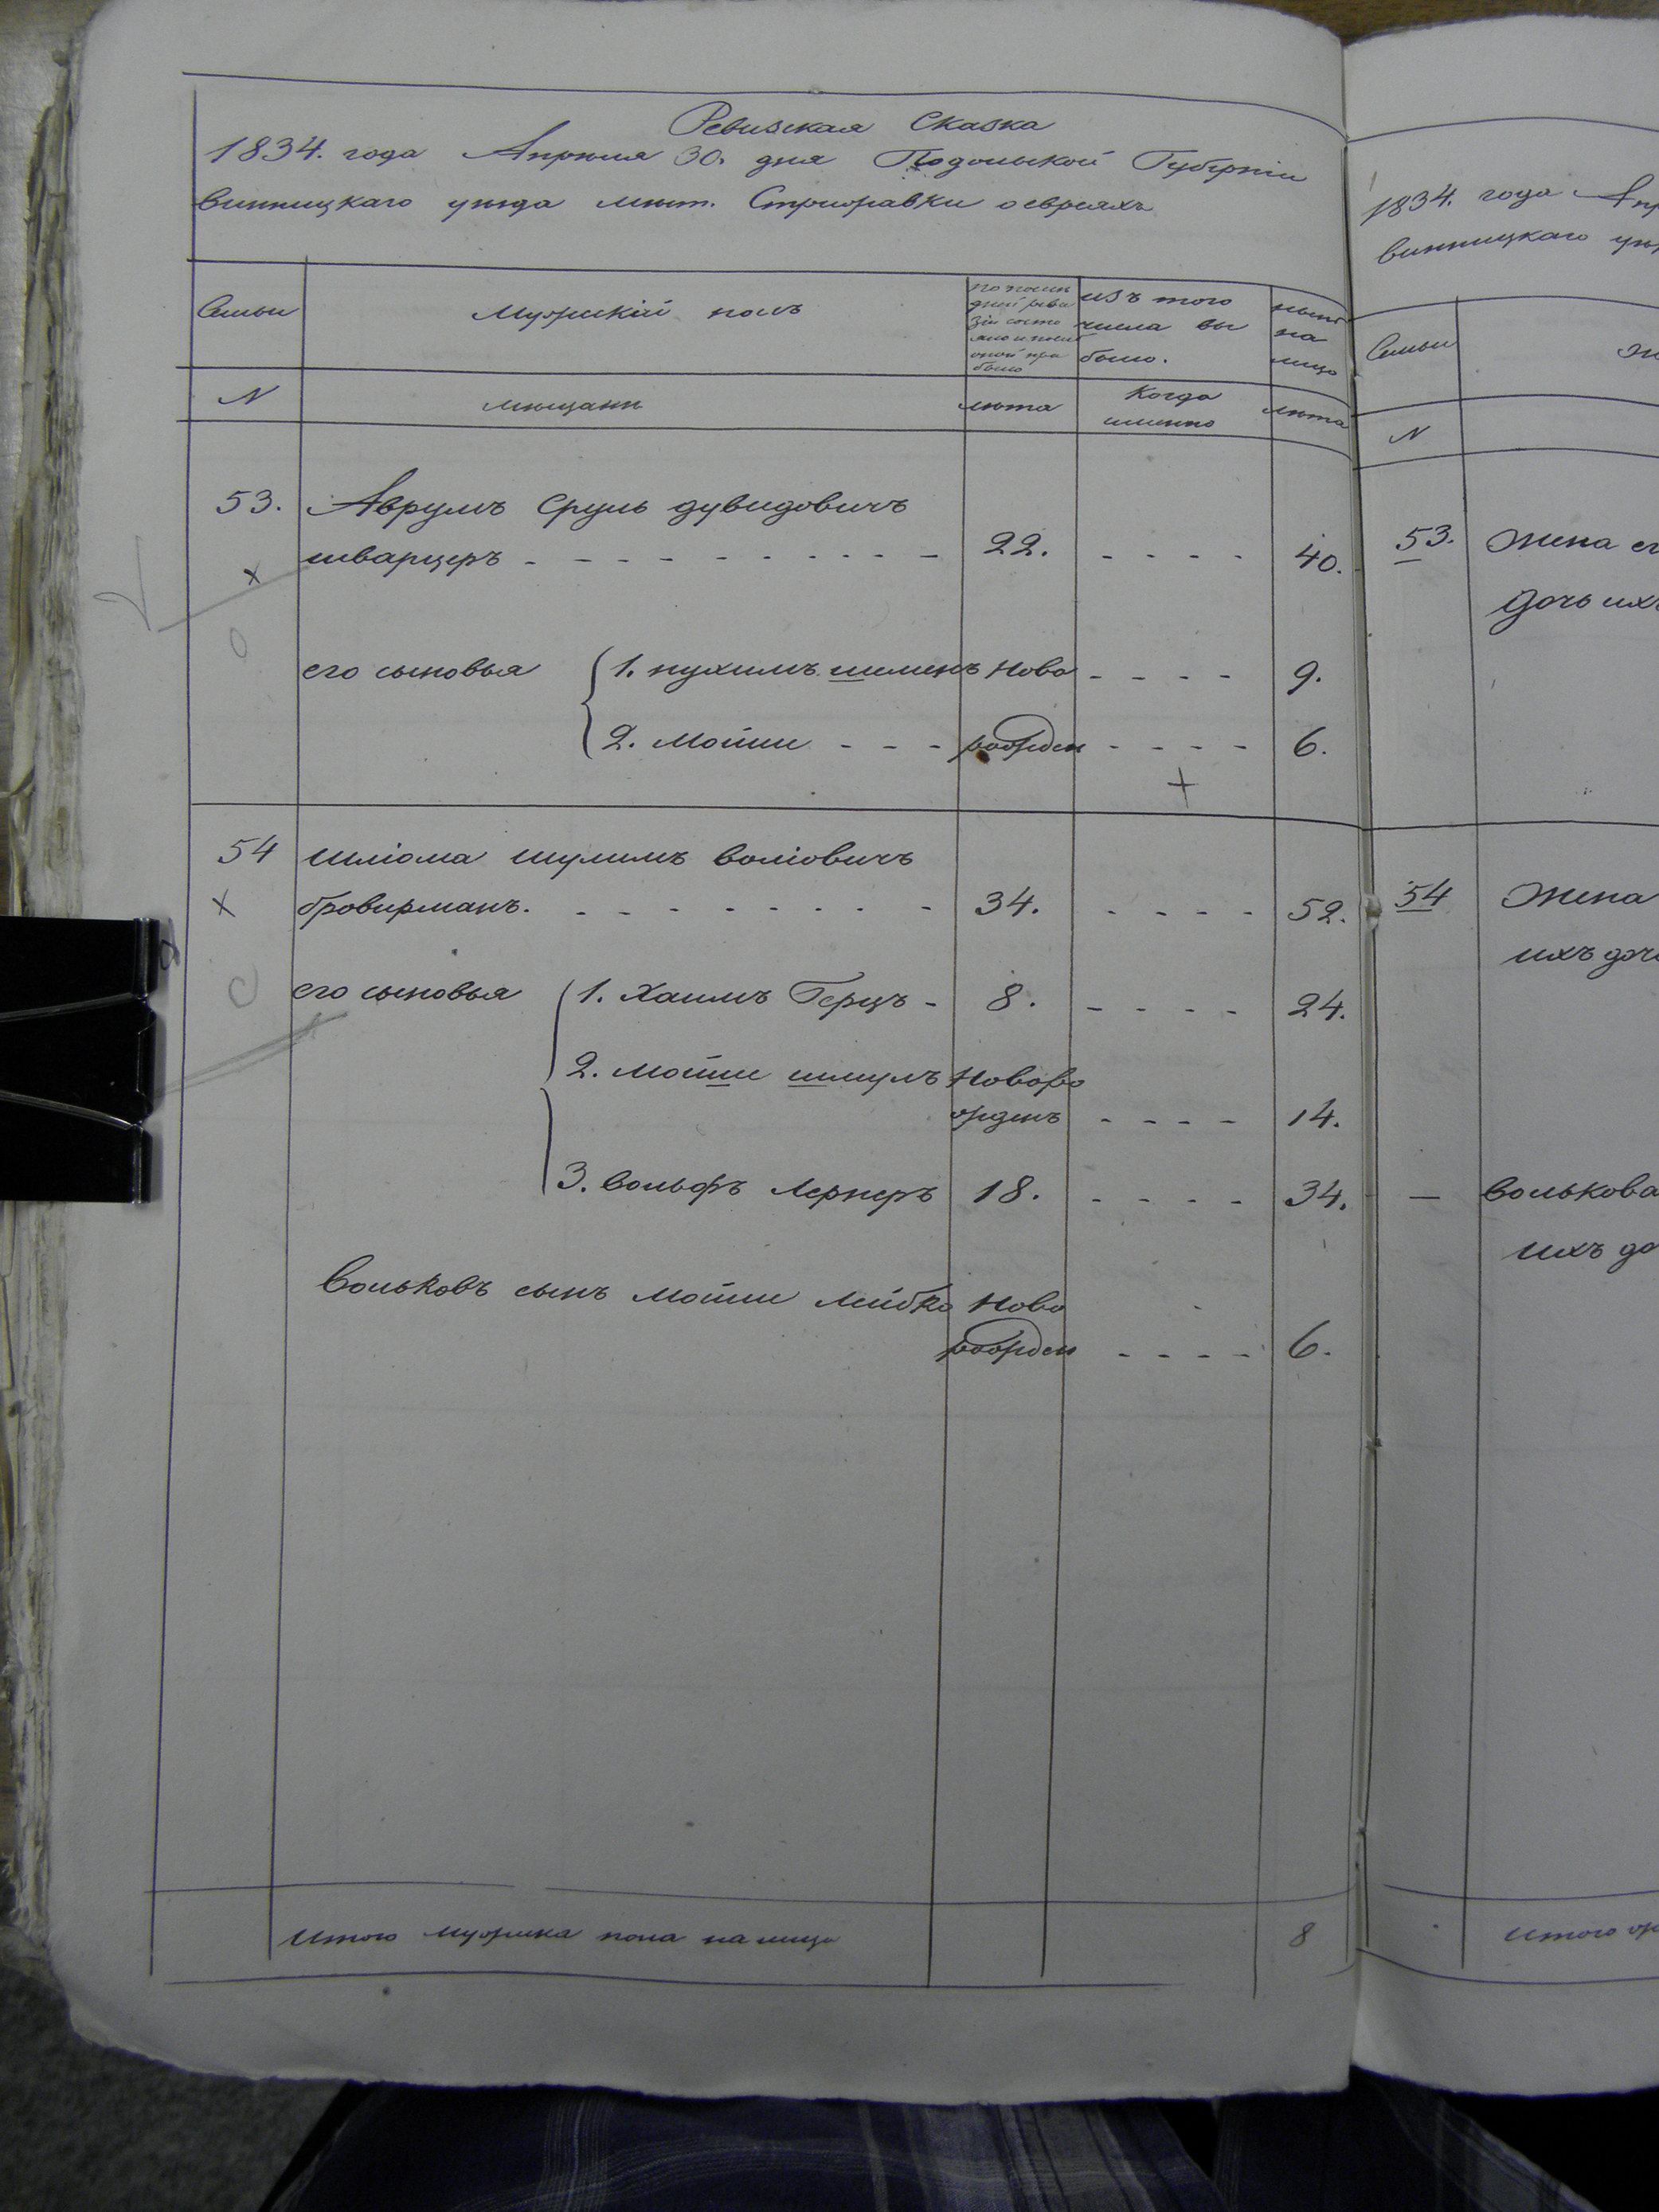 Ревизская Сказка
1834. года Апреля 30. дня Подольской Губерніи
винницкаго уезда мест. Стрижавки о евреяхъ
Семьи
Мужескій полъ
по послѣ
дней реви
зіи состо
яло и послѣ
оной при
было
изъ того
числа вы
было.
нынѣ
на
лицо
N
мещане
лета
Когда
именно
лета
53. Аврумъ Сруль дувидовичъ
шварцеръ - - - - - - - - - - - 22. - - - - 40.
его сыновья { 1. нухимъ шименъ Ново - - - - 9.
2. Мошии - - - рожден - - - - 6.
54 Шліома шулимъ воліовичъ
бровирманъ. - - - - - - - - - 34. - - - - 52.
его сыновья { 1. Хаимъ Герцъ - 8. - - - - 24.
2. мошии шмулъ Новоро
жденъ - - - - 14.
3. вольфъ Лернеръ 18. - - - - 34.
Вольковъ сынъ мошии лейбко Ново
рожден - - - - 6.
Итого мужеска пола на лицо 8
1834. года
винницкаго
Семьи
N
53. Жена
дочь ихъ
54 Жена
ихъ
— Волькова
ихъ
Итого